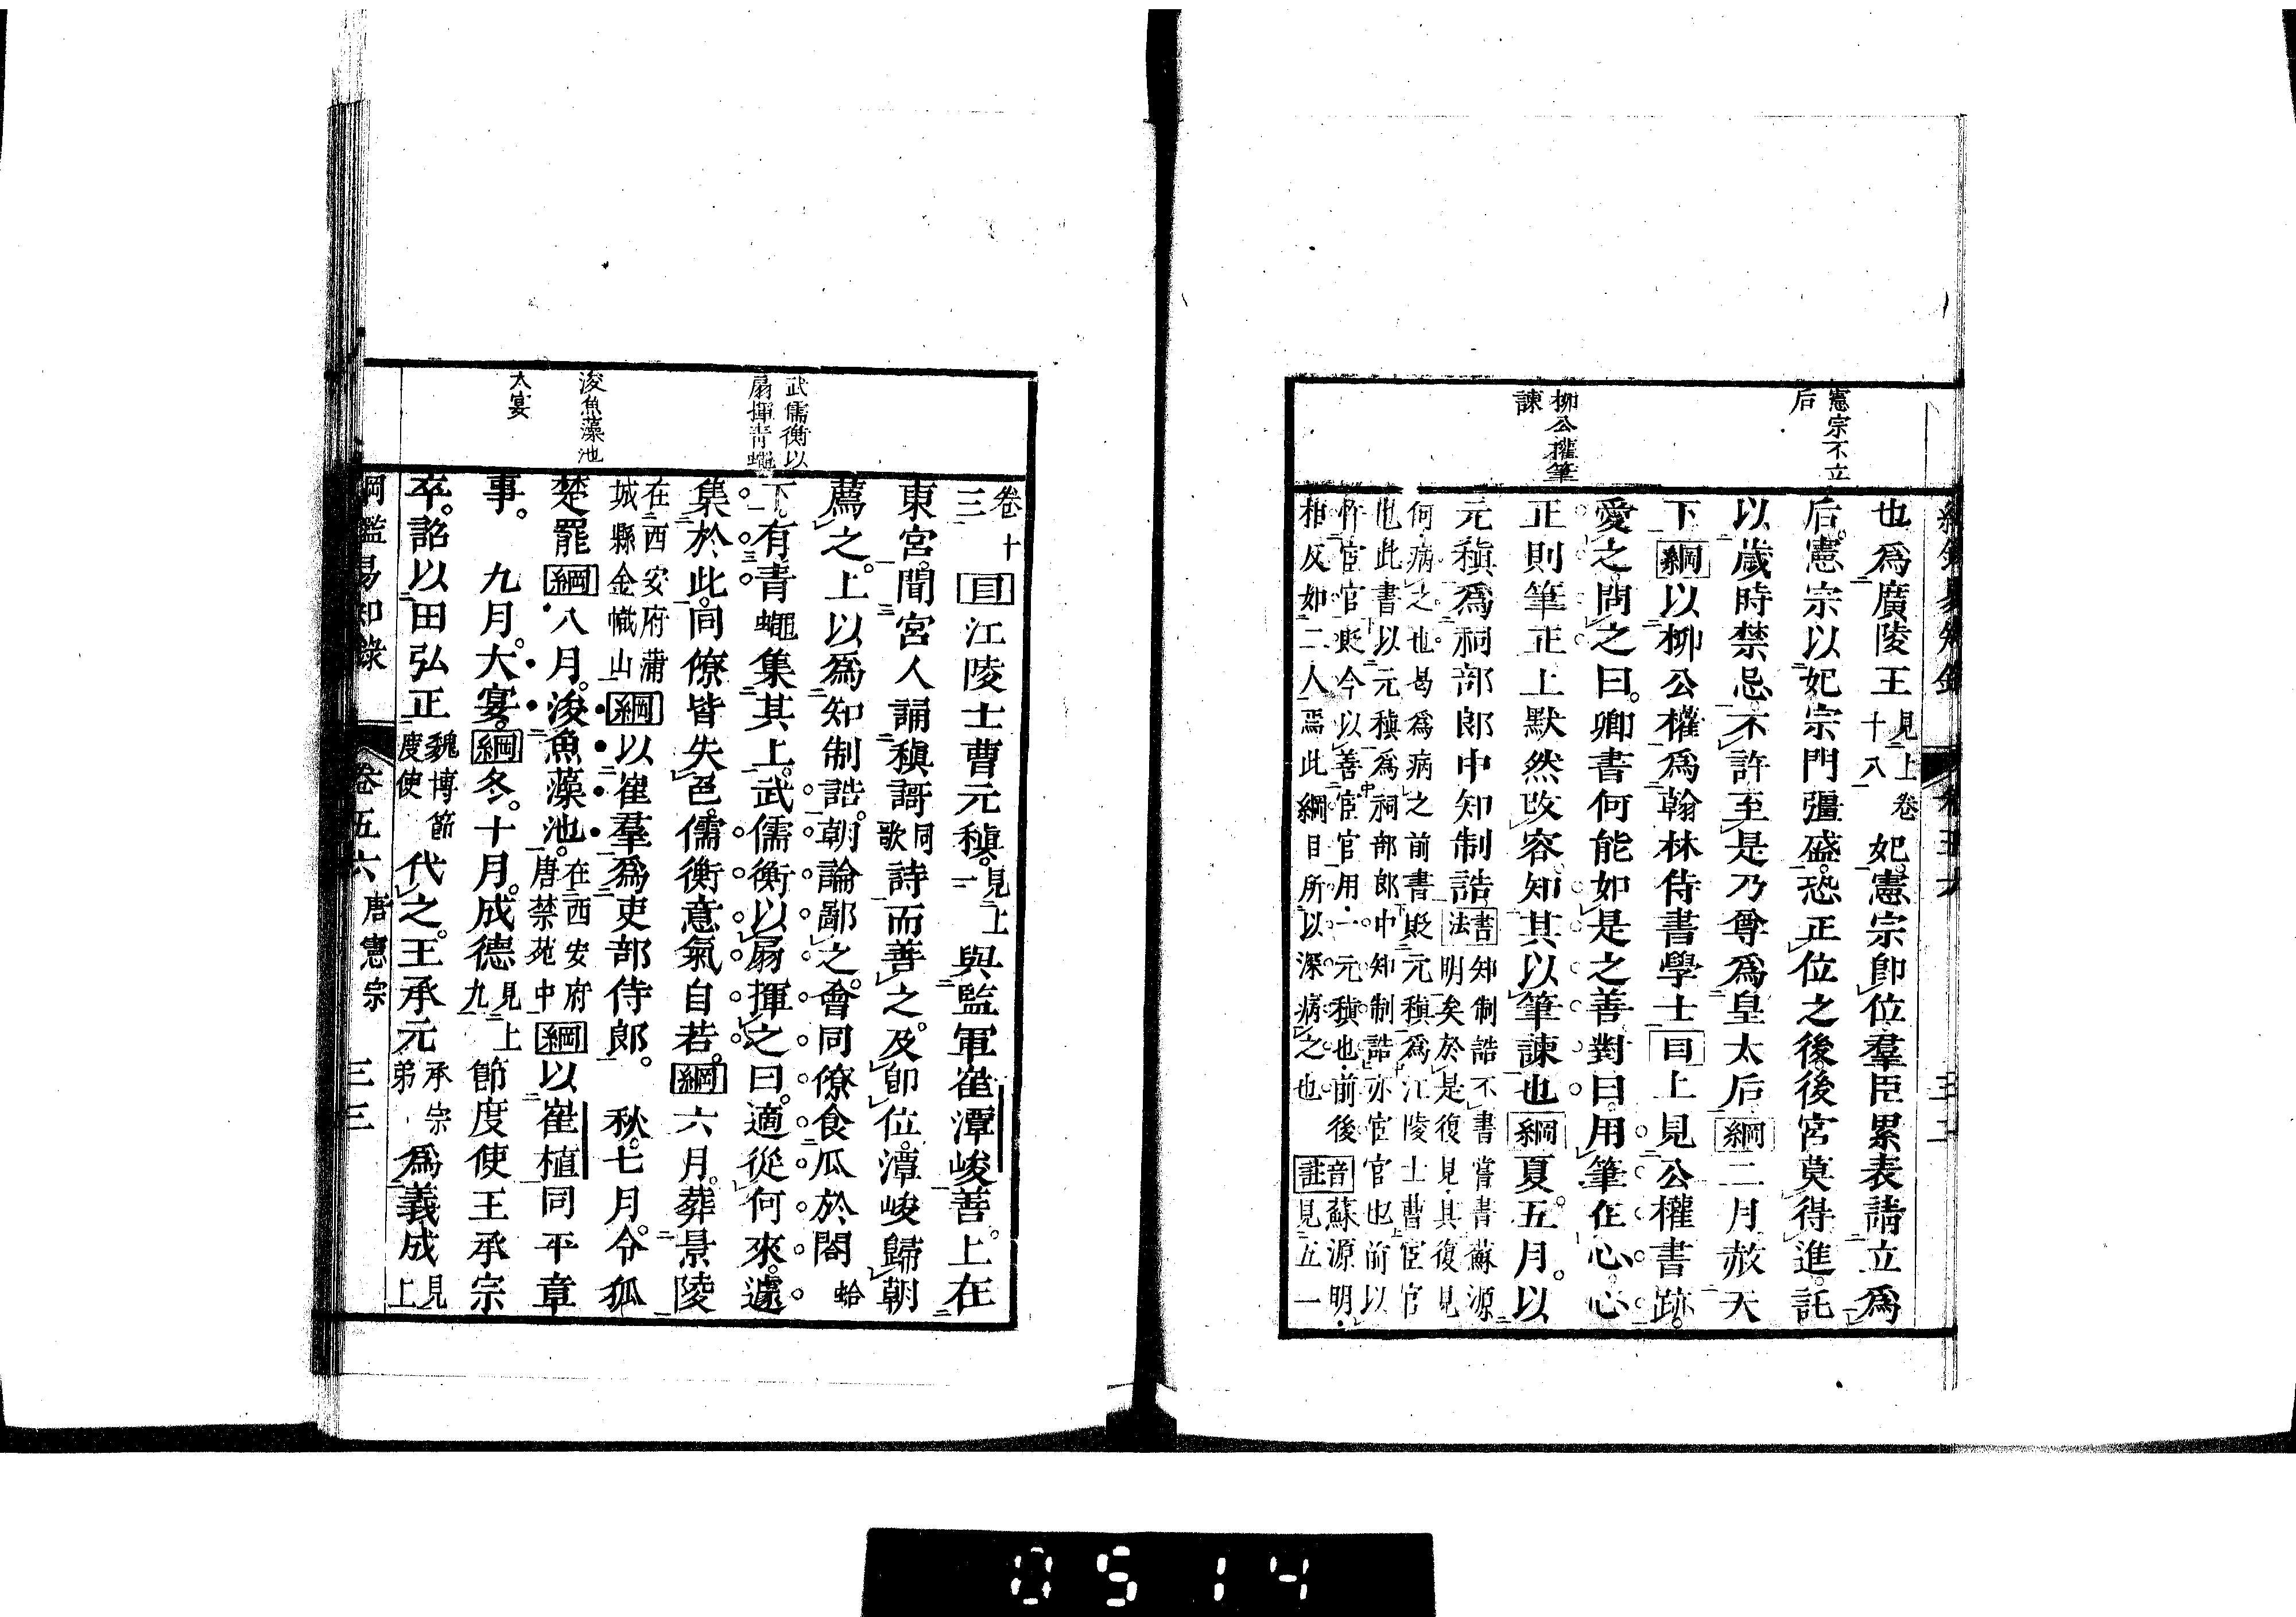 憲宗不立
后
柳公權筆
諫
也爲廣陵王見上卷十八妃憲宗卽位羣臣累表請立爲
后憲宗以妃宗門彊盛恐正位之後後宮莫得進託
以歲時禁忌不許至是乃尊爲皇太后綱二月赦天
下綱以柳公權爲翰林侍書學士目上見公權書跡
愛之問之曰卿書何能如是之善對曰用筆在心心
正則筆正上默然改容知其以筆諫也綱夏五月以
元稹爲祠部郎中知制誥書法知制誥不書嘗書蘇源明矣於是復見其復見
何病之也曷爲病之前書貶元稹爲江陵士曹宦官
也此書以元稹爲祠部郎中知制誥亦宦官也前以
忤宦官貶今以善宦官用一元稹也前後
相反如二人焉此綱目所以深病之也音註蘇源明見五一
武儒衡以
扇揮青蠅
浚魚藻池
大宴
卷十三目江陵士曹元稹見上與監軍崔潭峻善上在
東宮聞宮人誦稹謌同歌詩而善之及卽位潭峻歸朝
薦之上以爲知制誥朝論鄙之會同僚食瓜於閤蛤
下有青蠅集其上武儒衡以扇揮之曰適從何來遽
集於此同僚皆失色儒衡意氣自若綱六月葬景陵
在西安府蒲城縣金幟山綱以崔羣爲吏部侍郎 秋七月令狐
楚罷綱八月浚魚藻池在西安府唐禁苑中綱以崔植同平章
事 九月大宴綱冬十月成德見上九節度使王承宗
卒詔以田弘正魏博節度使代之王承元承宗弟爲義成見上
綱鑑易知錄 卷五六 唐憲宗 三三